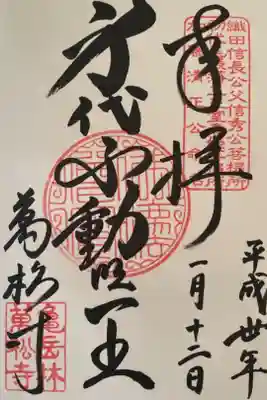 奉拝
織田信長公父信秀公菩提所
平成卅年
一月十二日
身代不動明王
萬松寺
龜岳林
萬松寺